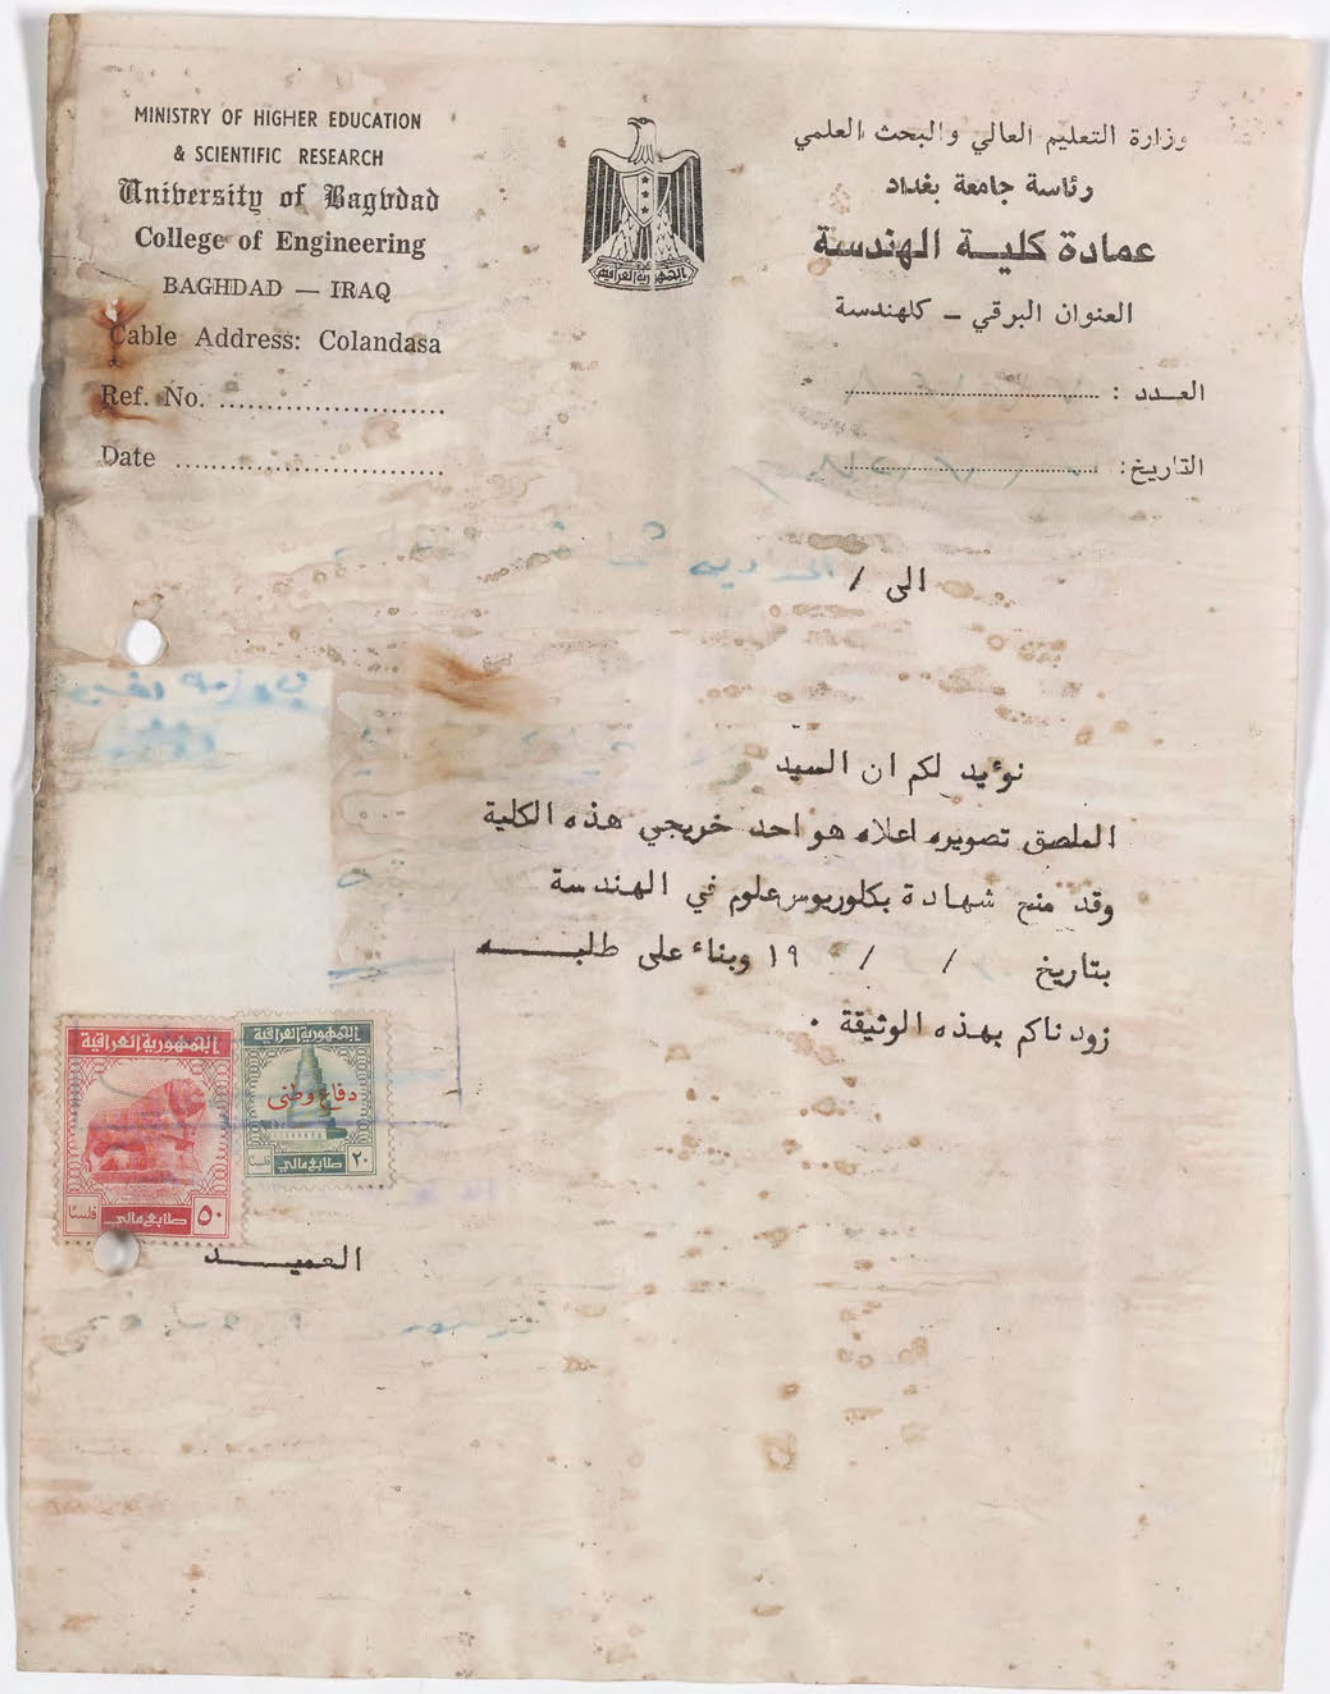 MINISTRY OF HIGHER EDUCATION
& SCIENTIFIC RESEARCH
University of Baghdad
College of Engineering
BAGHDAD — IRAQ
Cable Address: Colandasa
Ref. No. ........................
Date ............................
وزارة التعليم العالي والبحث العلمي
رئاسة جامعة بغداد
عمادة كليـة الهندسة
العنوان البرقي – كلهندسة
العـدد : ........................
التاريخ: ........................
الجمهورية العراقية
الى /
نوءيد لكم ان السيد
الملصق تصويره اعلاه هو احد خريجي هذه الكلية
وقد منح شهادة بكلوريوس علوم في الهندسة
بتاريخ / / ١٩ وبناء على طلبـــه
زودناكم بهذه الوثيقة .
الجمهورية العراقية
دفاع وطني
٢٠
طابع مالي
فلسا
الجمهورية العراقية
٥٠
طابع مالي
فلسا
العميـــد